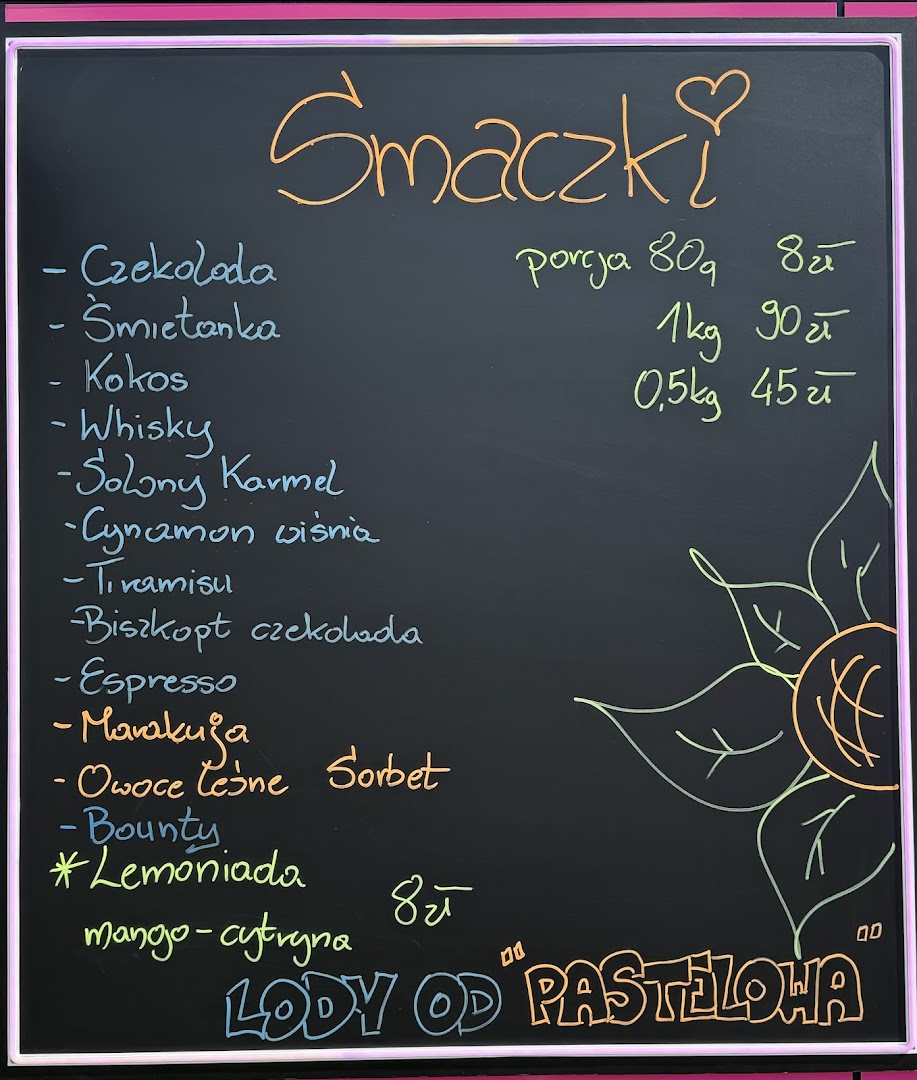 Smaczki
- Czekolada
- Śmietanka
- Kokos
- Whisky
- Solony Karmel
- Cynamon wiśnia
- Tiramisu
- Biszkopt czekolada
- Espresso
- Marakuja
- Owoce leśne Sorbet
- Bounty
* Lemoniada
mango-cytryna 8zł
porcja 80g 8zł
1kg 90zł
0,5kg 45zł
LODY OD "PASTELOWA"